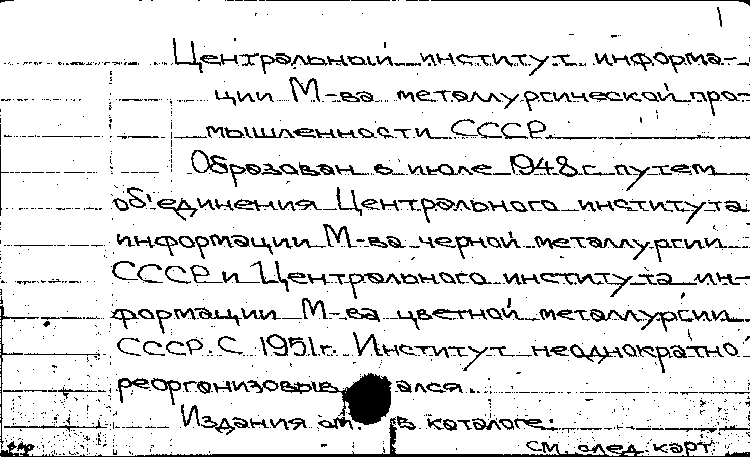 1
Центральный институт информа-
ции М-ва металлургической про-
мышленности СССР.
Образован в июле 1948 г. путем
об'единения Центрального института
информации М-ва черной металлургии
СССР и Центрального института ин-
формации М-ва цветной металлургии
СССР. С 1951г. Институт неоднократно
реорганизовывался.
Издания см. в каталоге:
см. след. карт